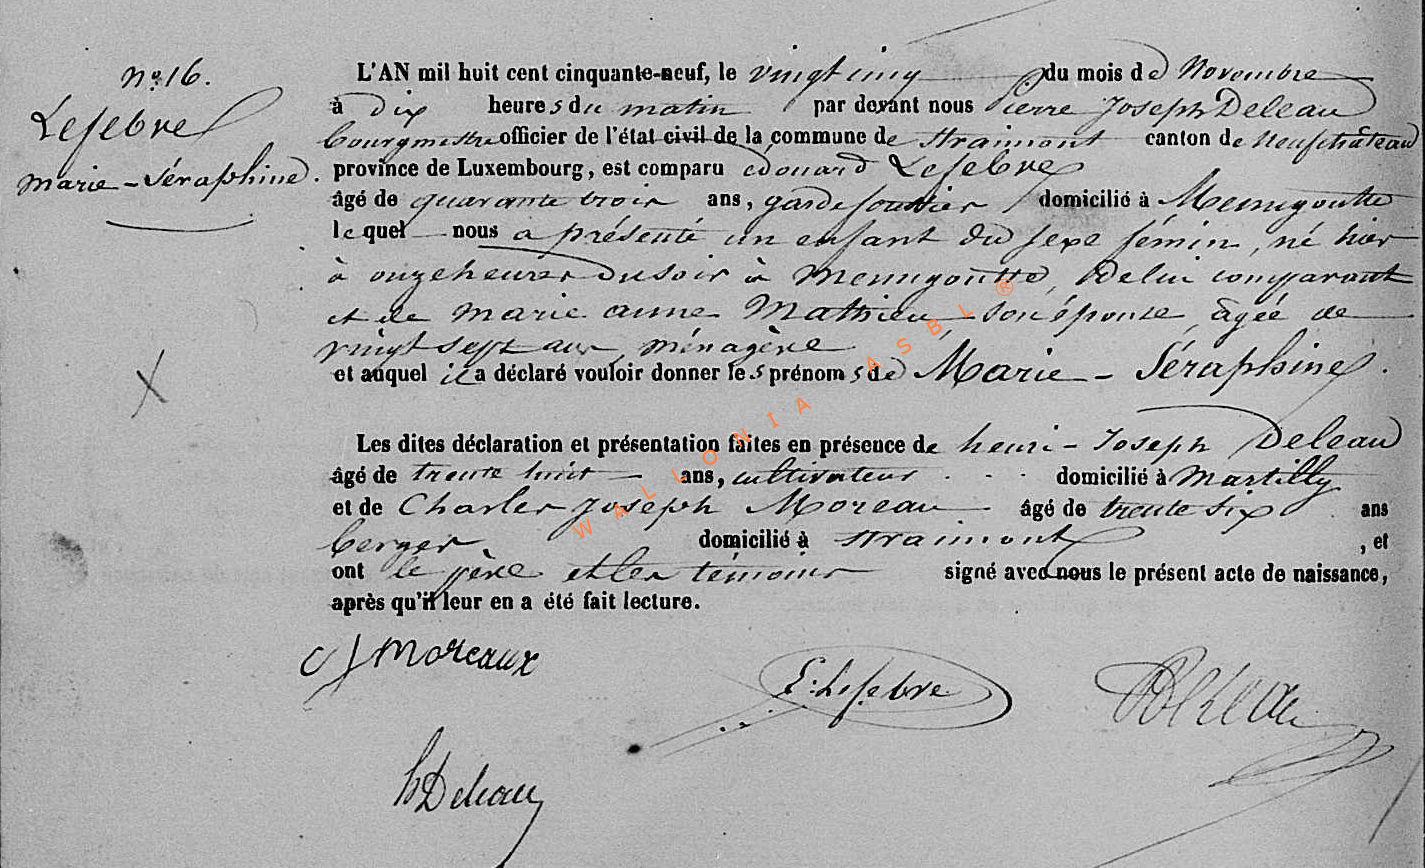 N° 16.
Lefebvre
Marie-Séraphine.
L'AN mil huit cent cinquante-neuf, le vingt cinq du mois de Novembre
à dix heures du matin par devant nous Pierre Joseph Deleau
bourgmestre officier de l'état civil de la commune de Straimont canton de Neufchâteau
province de Luxembourg, est comparu edouard Lefebvre
âgé de quarante trois ans, garde forestier domicilié à Menugoutte
lequel nous a présenté un enfant du sexe fémin, né hier
à onze heures du soir à Menugoutte, De lui comparant
et de marie anne Mathieu son épouse, âgée de
vingt sept ans, ménagère
et auquel il a déclaré vouloir donner les prénoms de Marie-Séraphine.
Les dites déclaration et présentation faites en présence de henri-Joseph Deleau
âgé de trente huit ans, cultivateur domicilié à Martilly
et de Charles Joseph Moreau âgé de trente six ans
berger domicilié à Straimont, et
ont le père et les témoins signé avec nous le présent acte de naissance,
après qu'il leur en a été fait lecture.
C J Moreaux
E. Lefebvre
H Deleau
WALLONIA ASBL ®